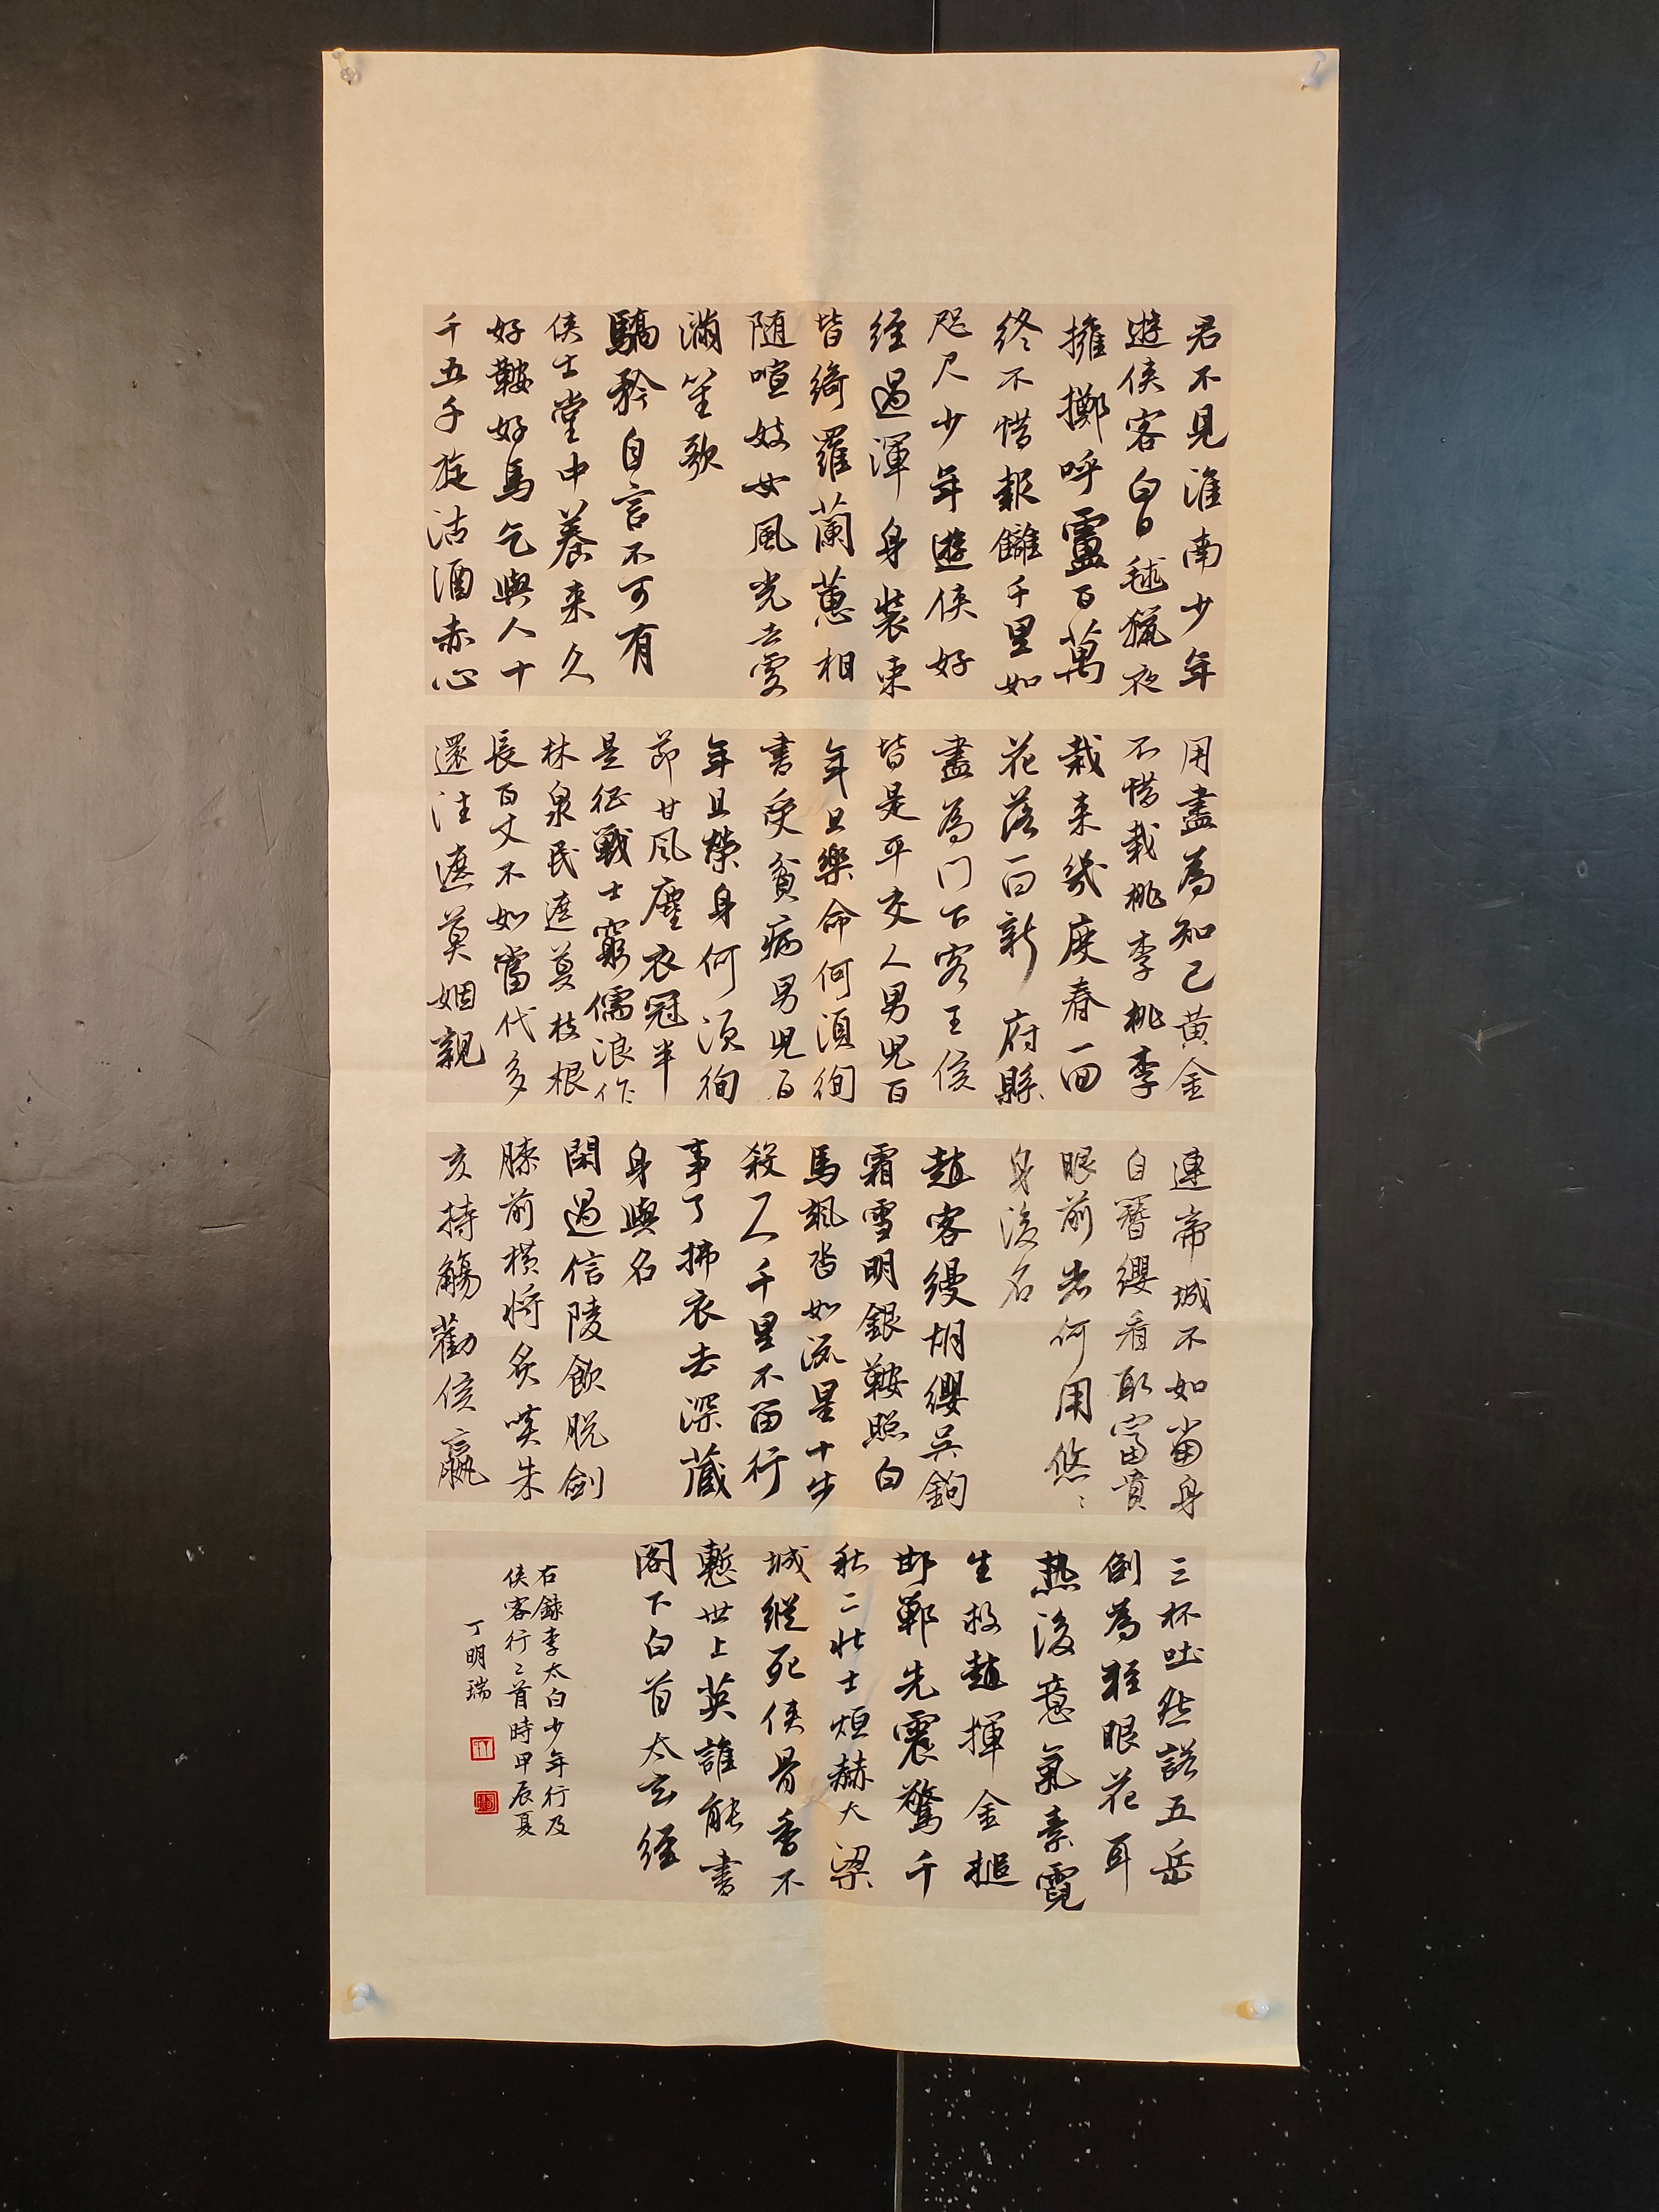 君不見淮南少年
遊俠客白日毬獵夜
擁擲呼盧百萬
終不惜報讎千里如
咫尺少年遊俠好
經過渾身裝束
皆綺羅蘭蕙相
随喧妓女風光去處
滿笙歌
驕矜自言不可有
俠士堂中養来久
好鞍好馬乞與人十
千五千旋沽酒赤心
用盡為知己黃金
不惜栽桃李桃李
栽来幾度春一回
花落一回新府縣
盡為門下客王侯
皆是平交人男児百
年且樂命何須徇
書受貧病男児百
年且榮身何須徇
節甘風塵衣冠半
是征戰士窮儒浪作
林泉民遮莫枝根
長百丈不如當代多
還往遮莫姻親
連帝城不如當身
自簪纓看取富貴
眼前者何用悠〻
身後名
趙客縵胡纓吳鉤
霜雪明銀鞍照白
馬颯沓如流星十步
殺一人千里不留行
事了拂衣去深藏
身與名
閑過信陵飲脱劍
膝前橫將炙啖朱
亥持觴勸侯嬴
三杯吐然諾五岳
倒為輕眼花耳
熱後意氣素霓
生救趙揮金槌
邯鄲先震驚千
秋二壯士烜赫大梁
城縱死俠骨香不
慙世上英誰能書
閣下白首太玄經
右錄李太白少年行及
俠客行二首時甲辰夏
丁明瑞